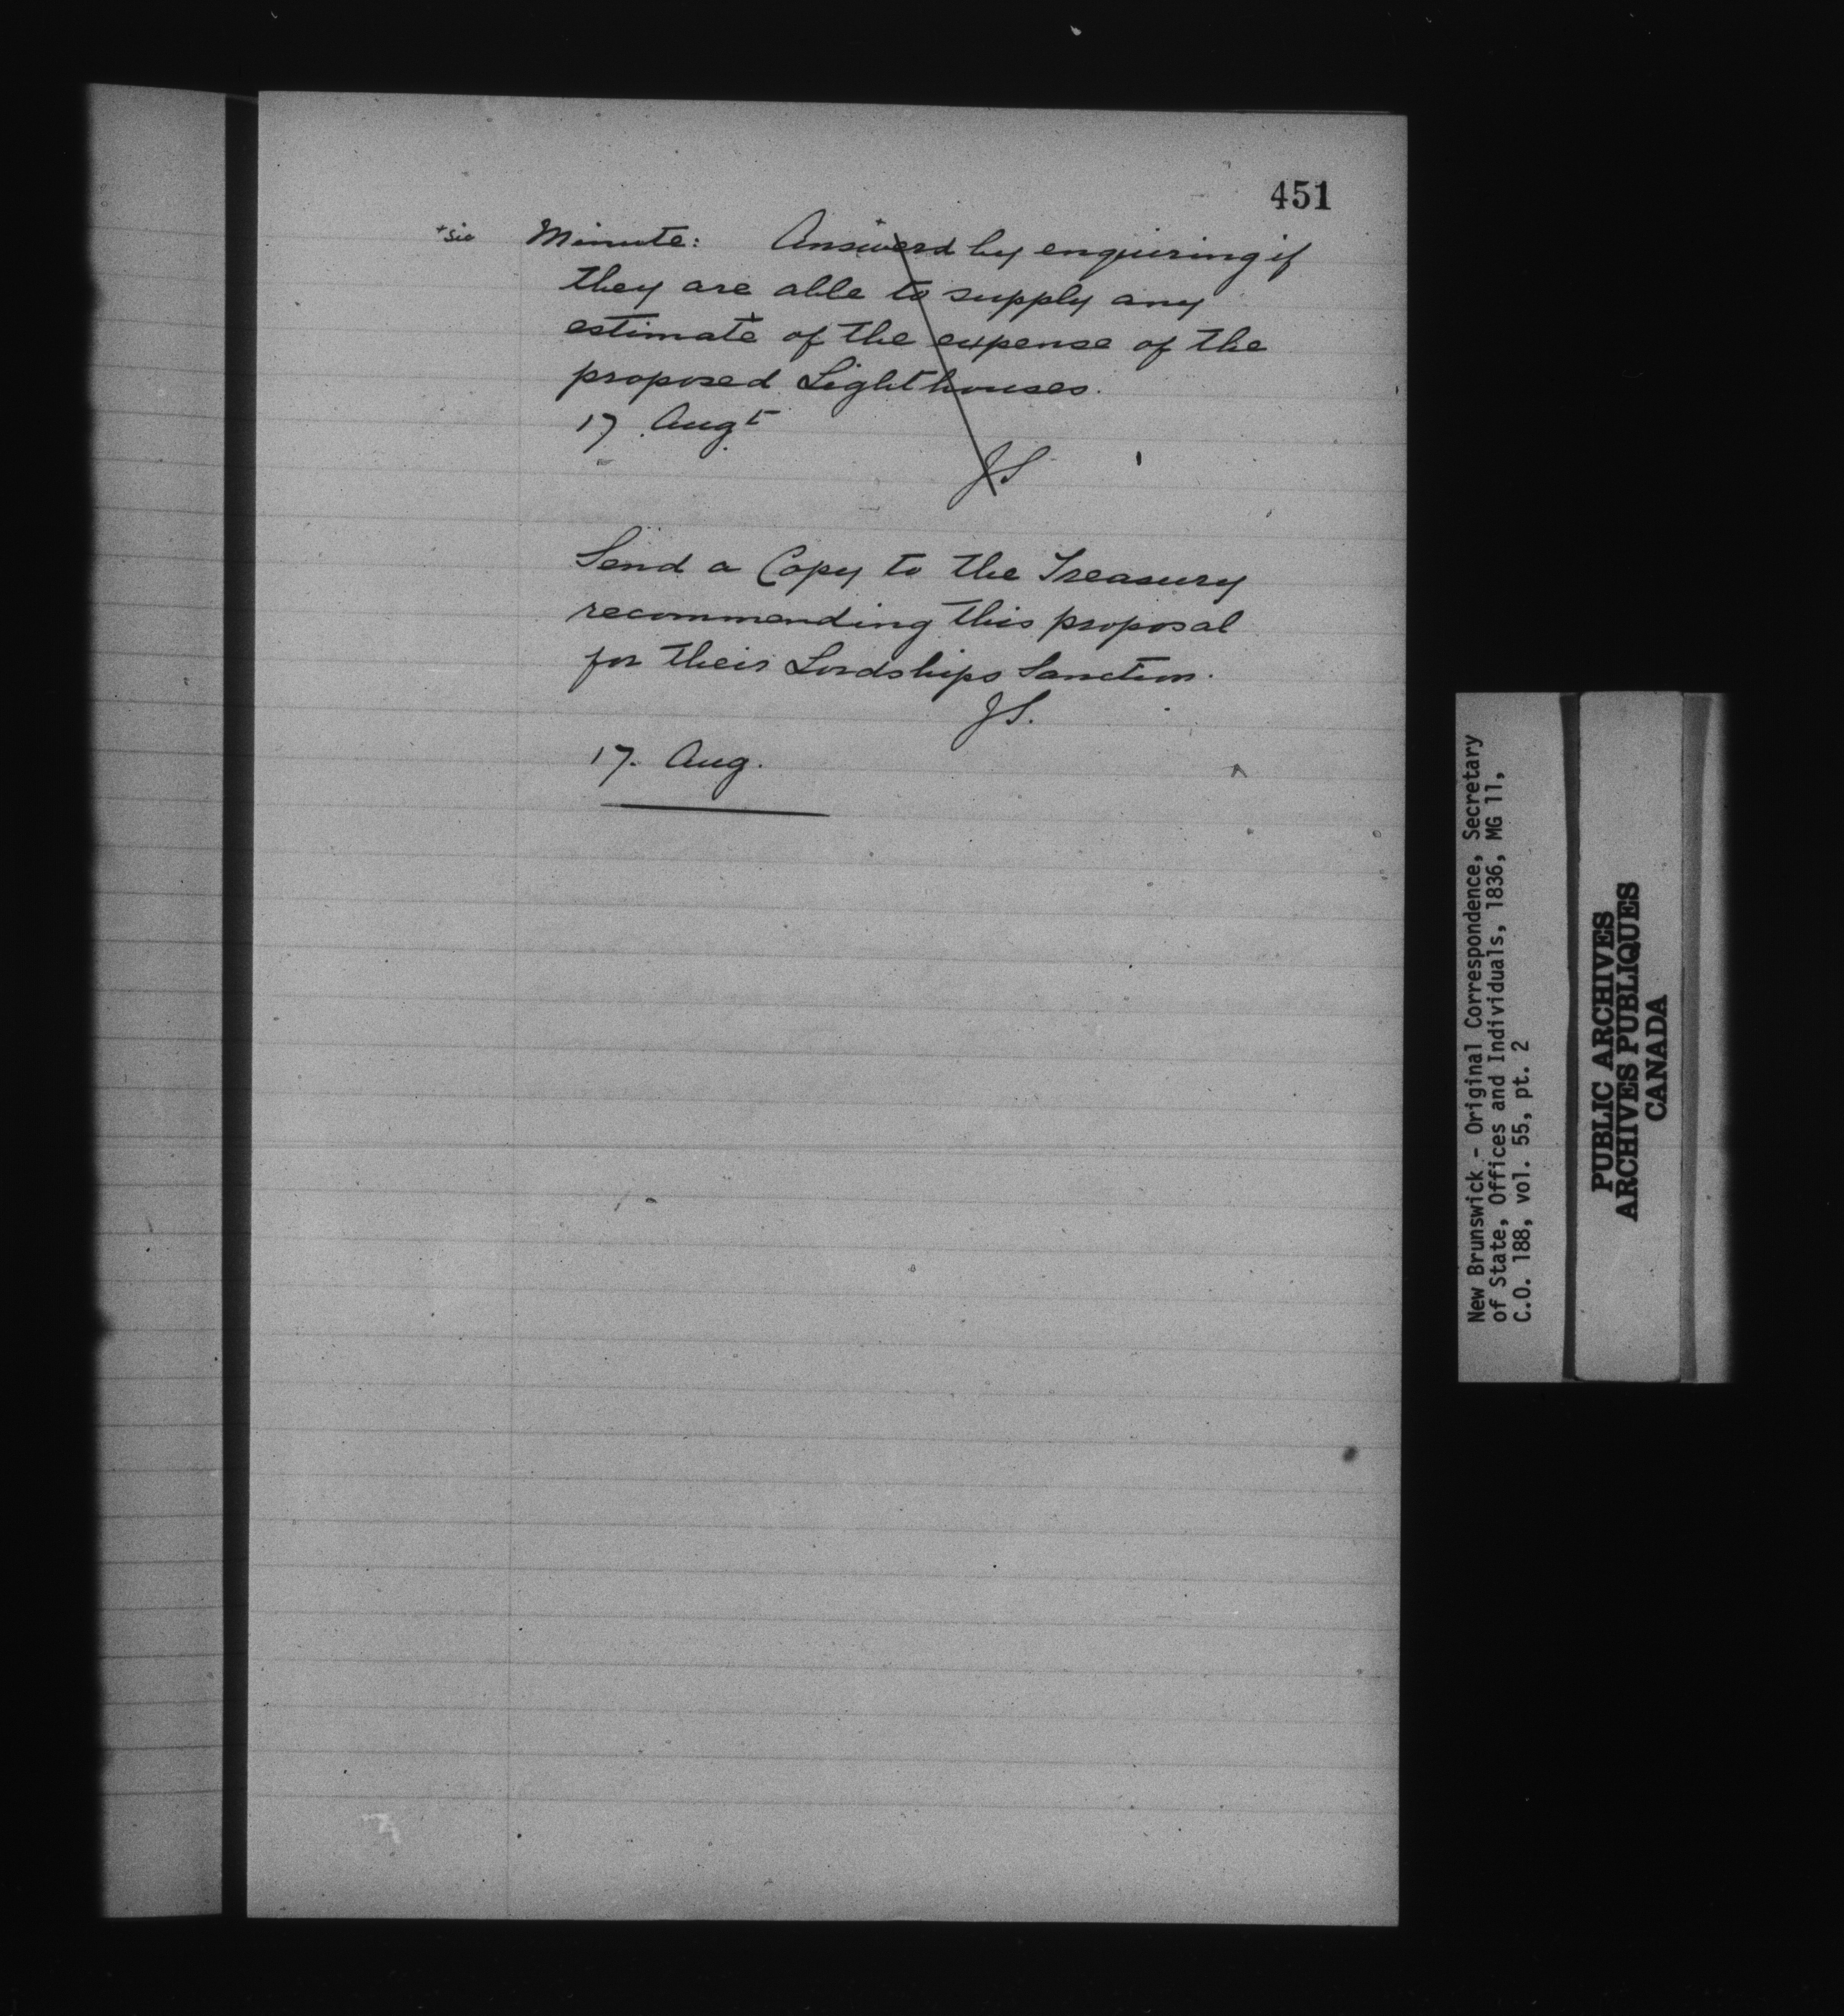 451
+sic Minute: Answerd by enquiring if
they are able to supply any
estimate of the expense of the
proposed Lighthouses.
17 Augt
JS
Send a Copy to the Treasury
recommending this proposal
for their Lordships Sanction.
JS.
17. Aug.
New Brunswick - Original Correspondence, Secretary
of State, Offices and Individuals, 1836, MG 11,
C.O. 188, vol. 55, pt. 2
PUBLIC ARCHIVES
ARCHIVES PUBLIQUES
CANADA